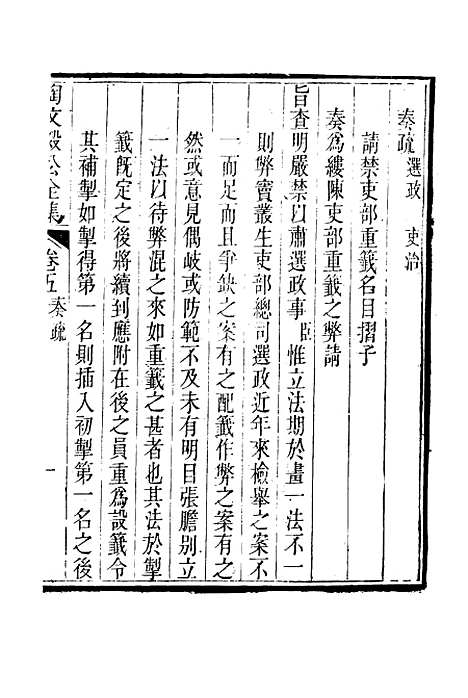 奏疏 選政 吏治
請禁吏部重籤名目摺子
奏爲縷陳吏部重籤之弊請
旨查明嚴禁以肅選政事臣惟立法期於畫一法不一
則弊竇叢生吏部總司選政近年來檢舉之案不
一而足而且爭缺之案有之配籤作弊之案有之
然或意見偶岐或防範不及未有明目張膽別立
一法以待弊混之來如重籤之甚者也其法於掣
籤既定之後將續到應附在後之員重爲設籤令
其補掣如掣得第一名則插入初掣第一名之後
陶文毅公全集 卷五 奏疏 一